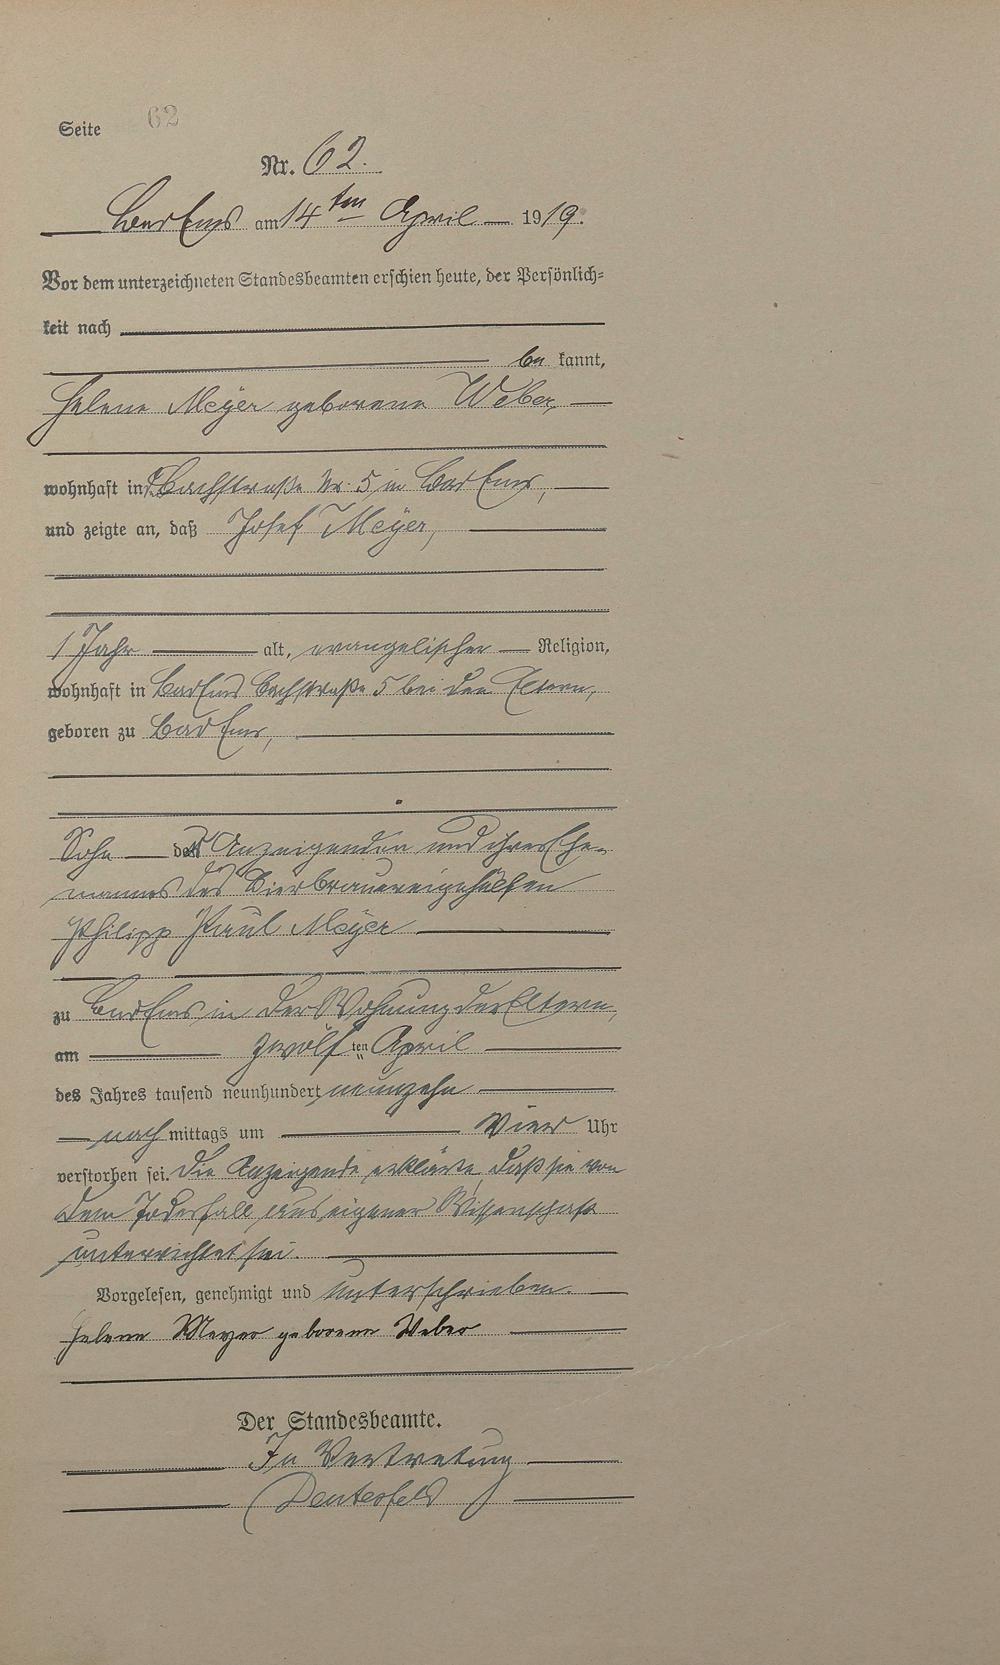 Seite 62
Nr. 62.
Bad Ems am 14ten April 1919.
Vor dem unterzeichneten Standesbeamten erschien heute, der Persönlich=
keit nach
be kannt,
Helene Meyer geborene Weber,
wohnhaft in Bachstraße Nr. 5 in Bad Ems,
und zeigte an, daß Josef Meyer,
1 Jahr alt, evangelischer Religion,
wohnhaft in Bad Ems Bachstraße 5 bei den Eltern,
geboren zu Bad Ems,
Sohn der Anzeigenden und ihres Ehe-
mannes des Bierbrauereigehülfen
Philipp Paul Meyer
zu Bad Ems, in der Wohnung der Eltern,
am zwölf ten April
des Jahres tausend neunhundert neunzehn
nach mittags um vier Uhr
verstorben sei. Die Anzeigende erklärte, daß sie von
dem Todesfall aus eigener Wissenschaft
unterrichtet sei.
Vorgelesen, genehmigt und unterschrieben.
Helene Meyer geborene Weber
Der Standesbeamte.
In Vertretung